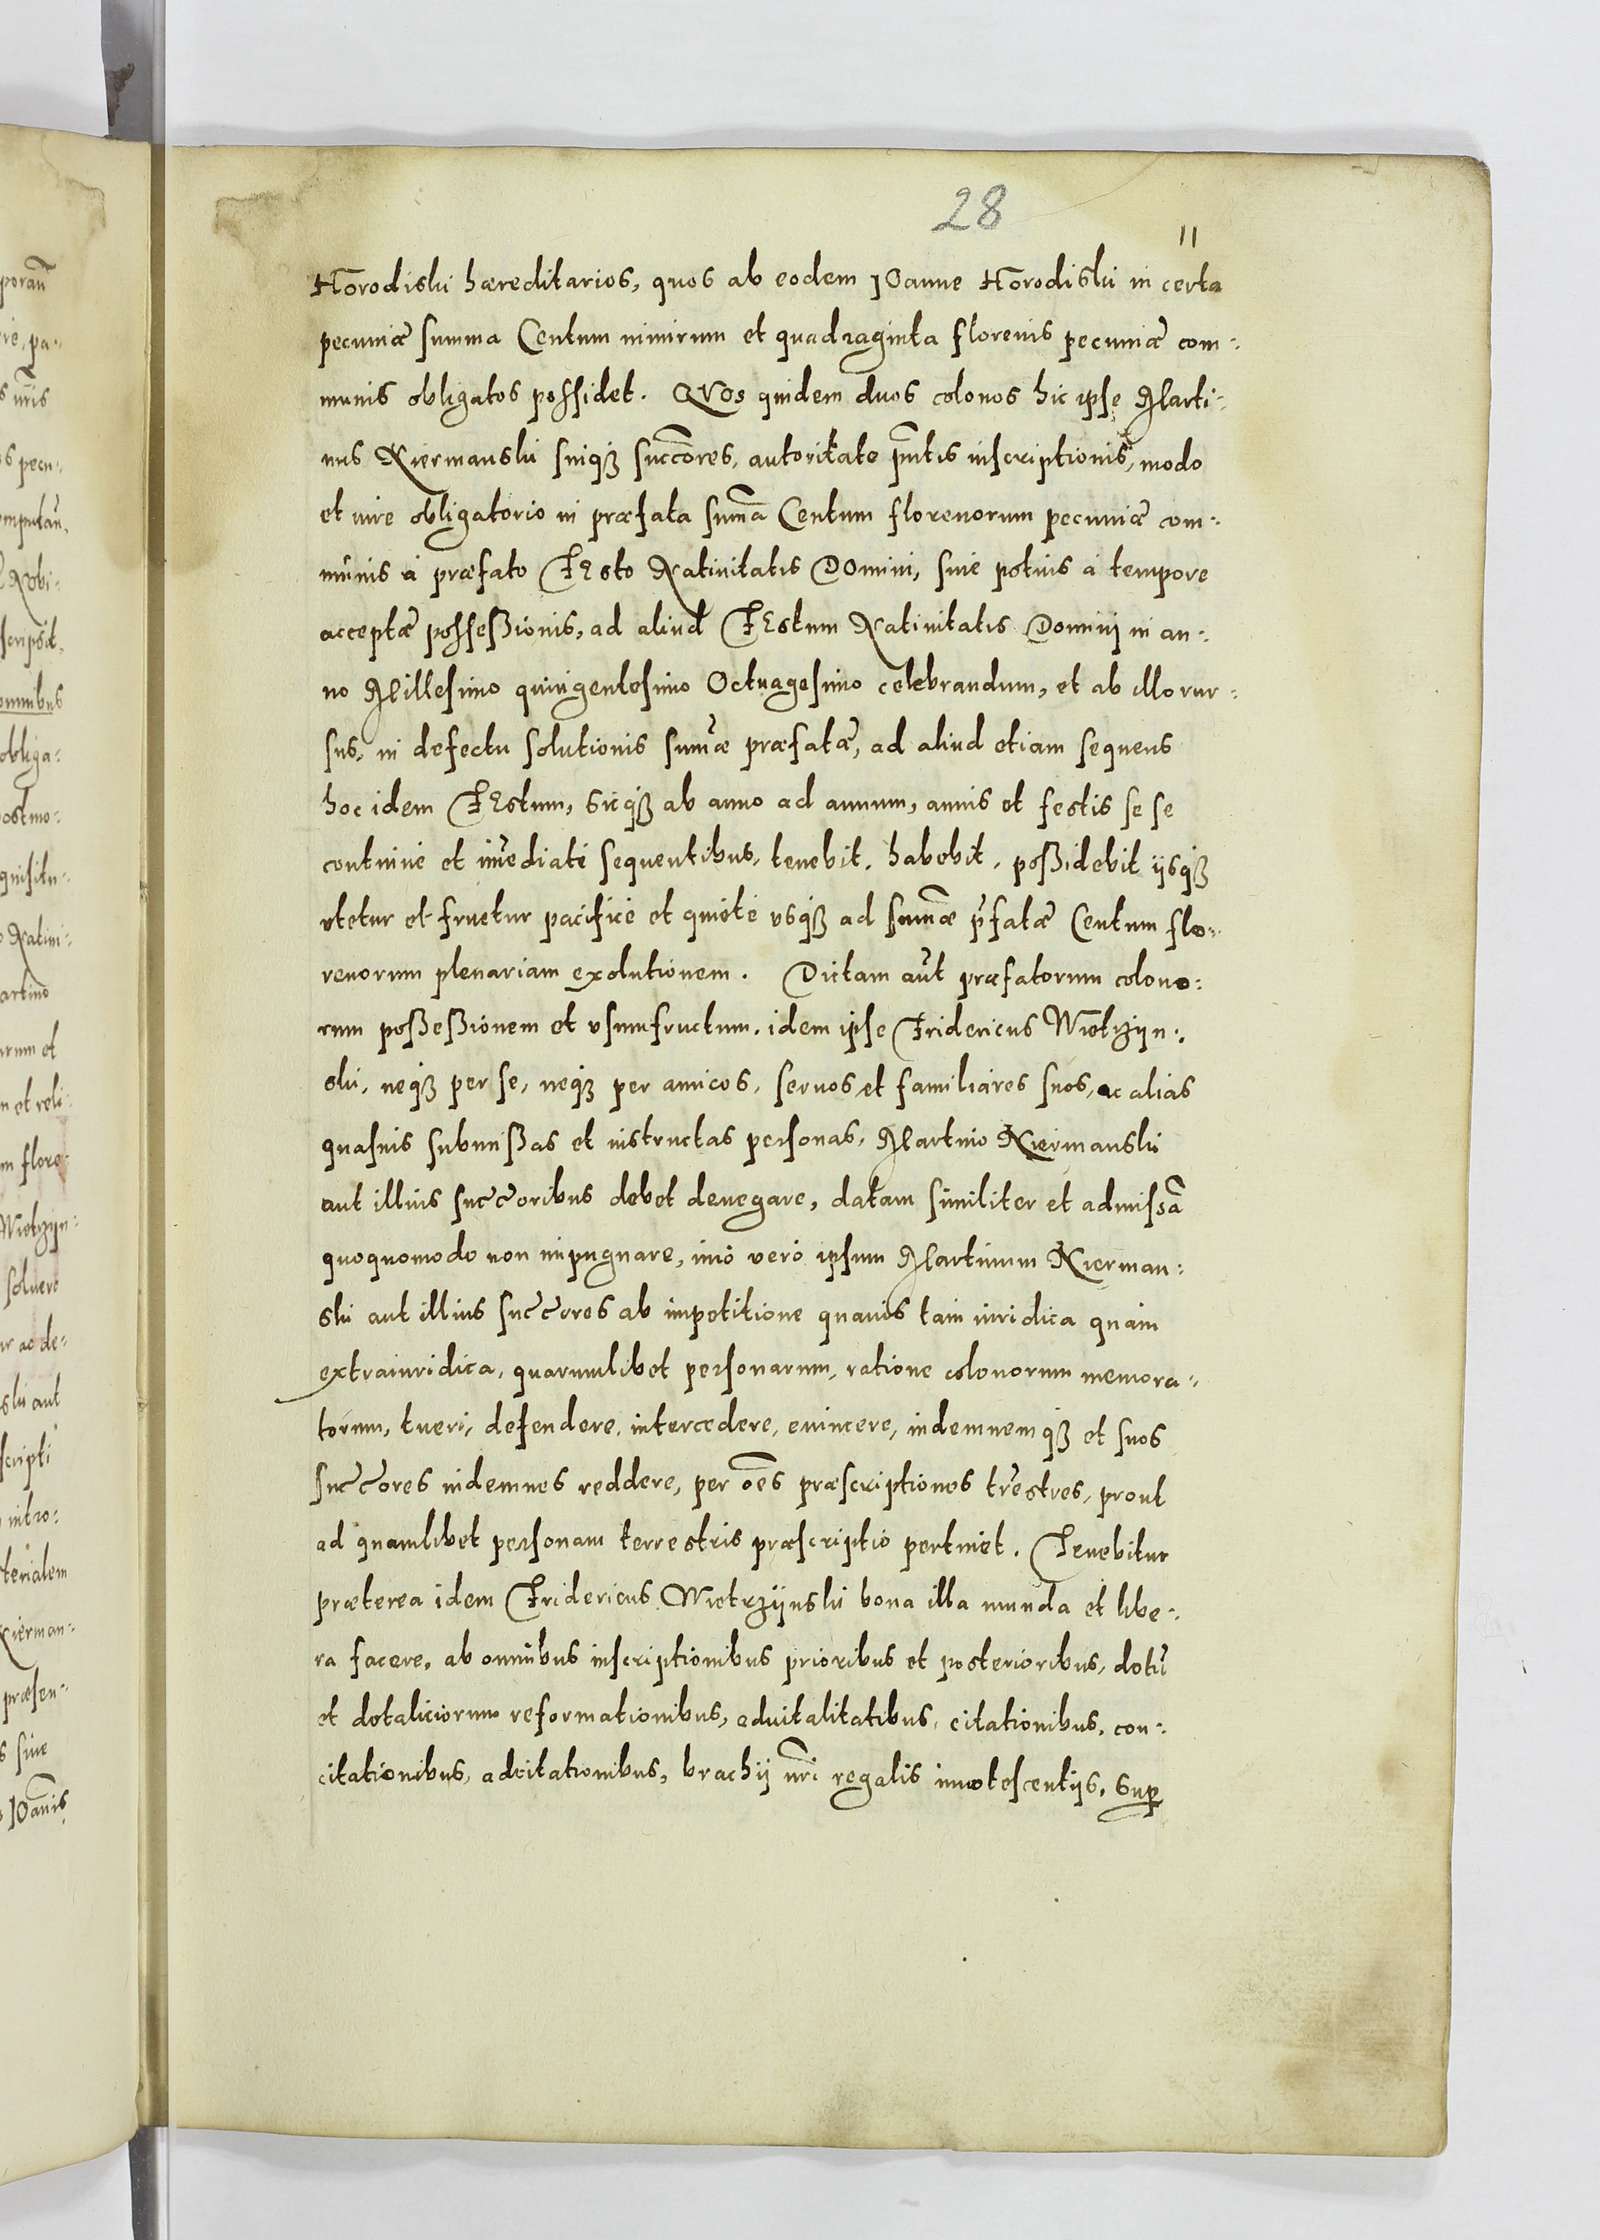 28
11
Horodiski hæreditarios, quos ab eodem JOanne Horodiski in certa
pecuniæ summa Centum nimirum et quadraginta florenis pecuniæ com-
munis obligatos possidet. QVOs quidem duos colonos hic ipse Marti-
nus Niermanski suiqꝫ succ̃ores, autoritate p̃ntis inscriptionis, modo
et iure obligatorio in præfata sum̃a Centum florenorum pecuniæ com-
munis à præfato FEsto Natiuitatis DOmini, siue potius à tempore
acceptæ possessionis, ad aliud FEstum Natiuitatis Dominij in an-
no Millesimo quingentesimo Octuagesimo celebrandum, et ab illo rur-
sus, in defectu solutionis sum̃æ præfatæ, ad aliud etiam sequens
hoc idem FEstum, sicqꝫ ab anno ad annum, annis et festis se se
continué et im̃ediaté sequentibus, tenebit, habebit, poßidebit ijsqꝫ
vtetur et fruetur pacificé et quieté vsqꝫ ad sum̃æ p̃fatæ Centum flo-
renorum plenariam exolutionem. Dictam aũt præfatorum colono-
rum poßeßionem et vsumfructum, idem ipse Fridericus Wietrzijn-
ski, neqꝫ per se, neqꝫ per amicos, seruos et familiares suos, ac alias
quasuis submißas et instructas personas, Martino Niermanski
aut illius succ̃oribus debet denegare, datam similiter et admissã
quoquomodo non impugnare, imò verò ipsum Martinum Nierman-
ski aut illius succ̃ores ab impetitione quauis tam iuridica quàm
extraiuridica, quarumlibet personarum, ratione colonorum memora-
torum, tueri, defendere, intercedere, euincere, indemnemqꝫ et suos
succ̃ores indemnes reddere, per oẽs præscriptiones tr̃estres, prout
ad quamlibet personam terrestris præscriptio pertinet. Tenebitur
præterea idem Fridericus Wietrzijnski bona illa munda et libe-
ra facere, ab omnibus inscriptionibus prioribus et posterioribus, dotũ
et dotaliciorum reformationibus, aduitalitatibus, citationibus, con-
citationibus, adcitationibus, brachij nr̃i regalis innotescentijs, suꝑ